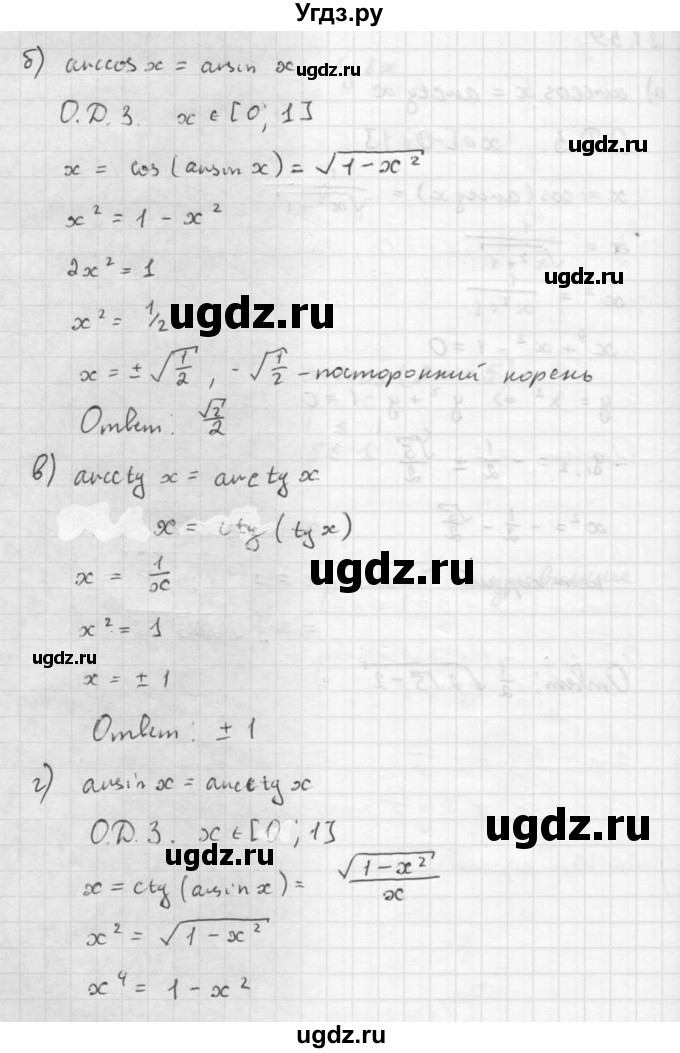 Угдз.ру
б) arccos x = arcsin x
ugdz.ru
О.Д.З. x ∈ [0; 1]
ugdz.ru
x = cos(arcsin x) = √(1 - x²)
x² = 1 - x²
2x² = 1
ugdz.ru
x² = 1/2
ugdz.ru
x = ± √(1/2), - √(1/2) - посторонний корень
Ответ: √2/2
в) arcctg x = arctg x
x = ctg(tg x)
x = 1/x
ugdz.ru
x² = 1
ugdz.ru
x = ± 1
Ответ: ± 1
г) arcsin x = arcctg x
О.Д.З. x ∈ [0; 1]
ugdz.ru
ugdz.ru
x = ctg(arcsin x) = √(1 - x²)/x
x² = √(1 - x²)
x⁴ = 1 - x²
ugdz.ru